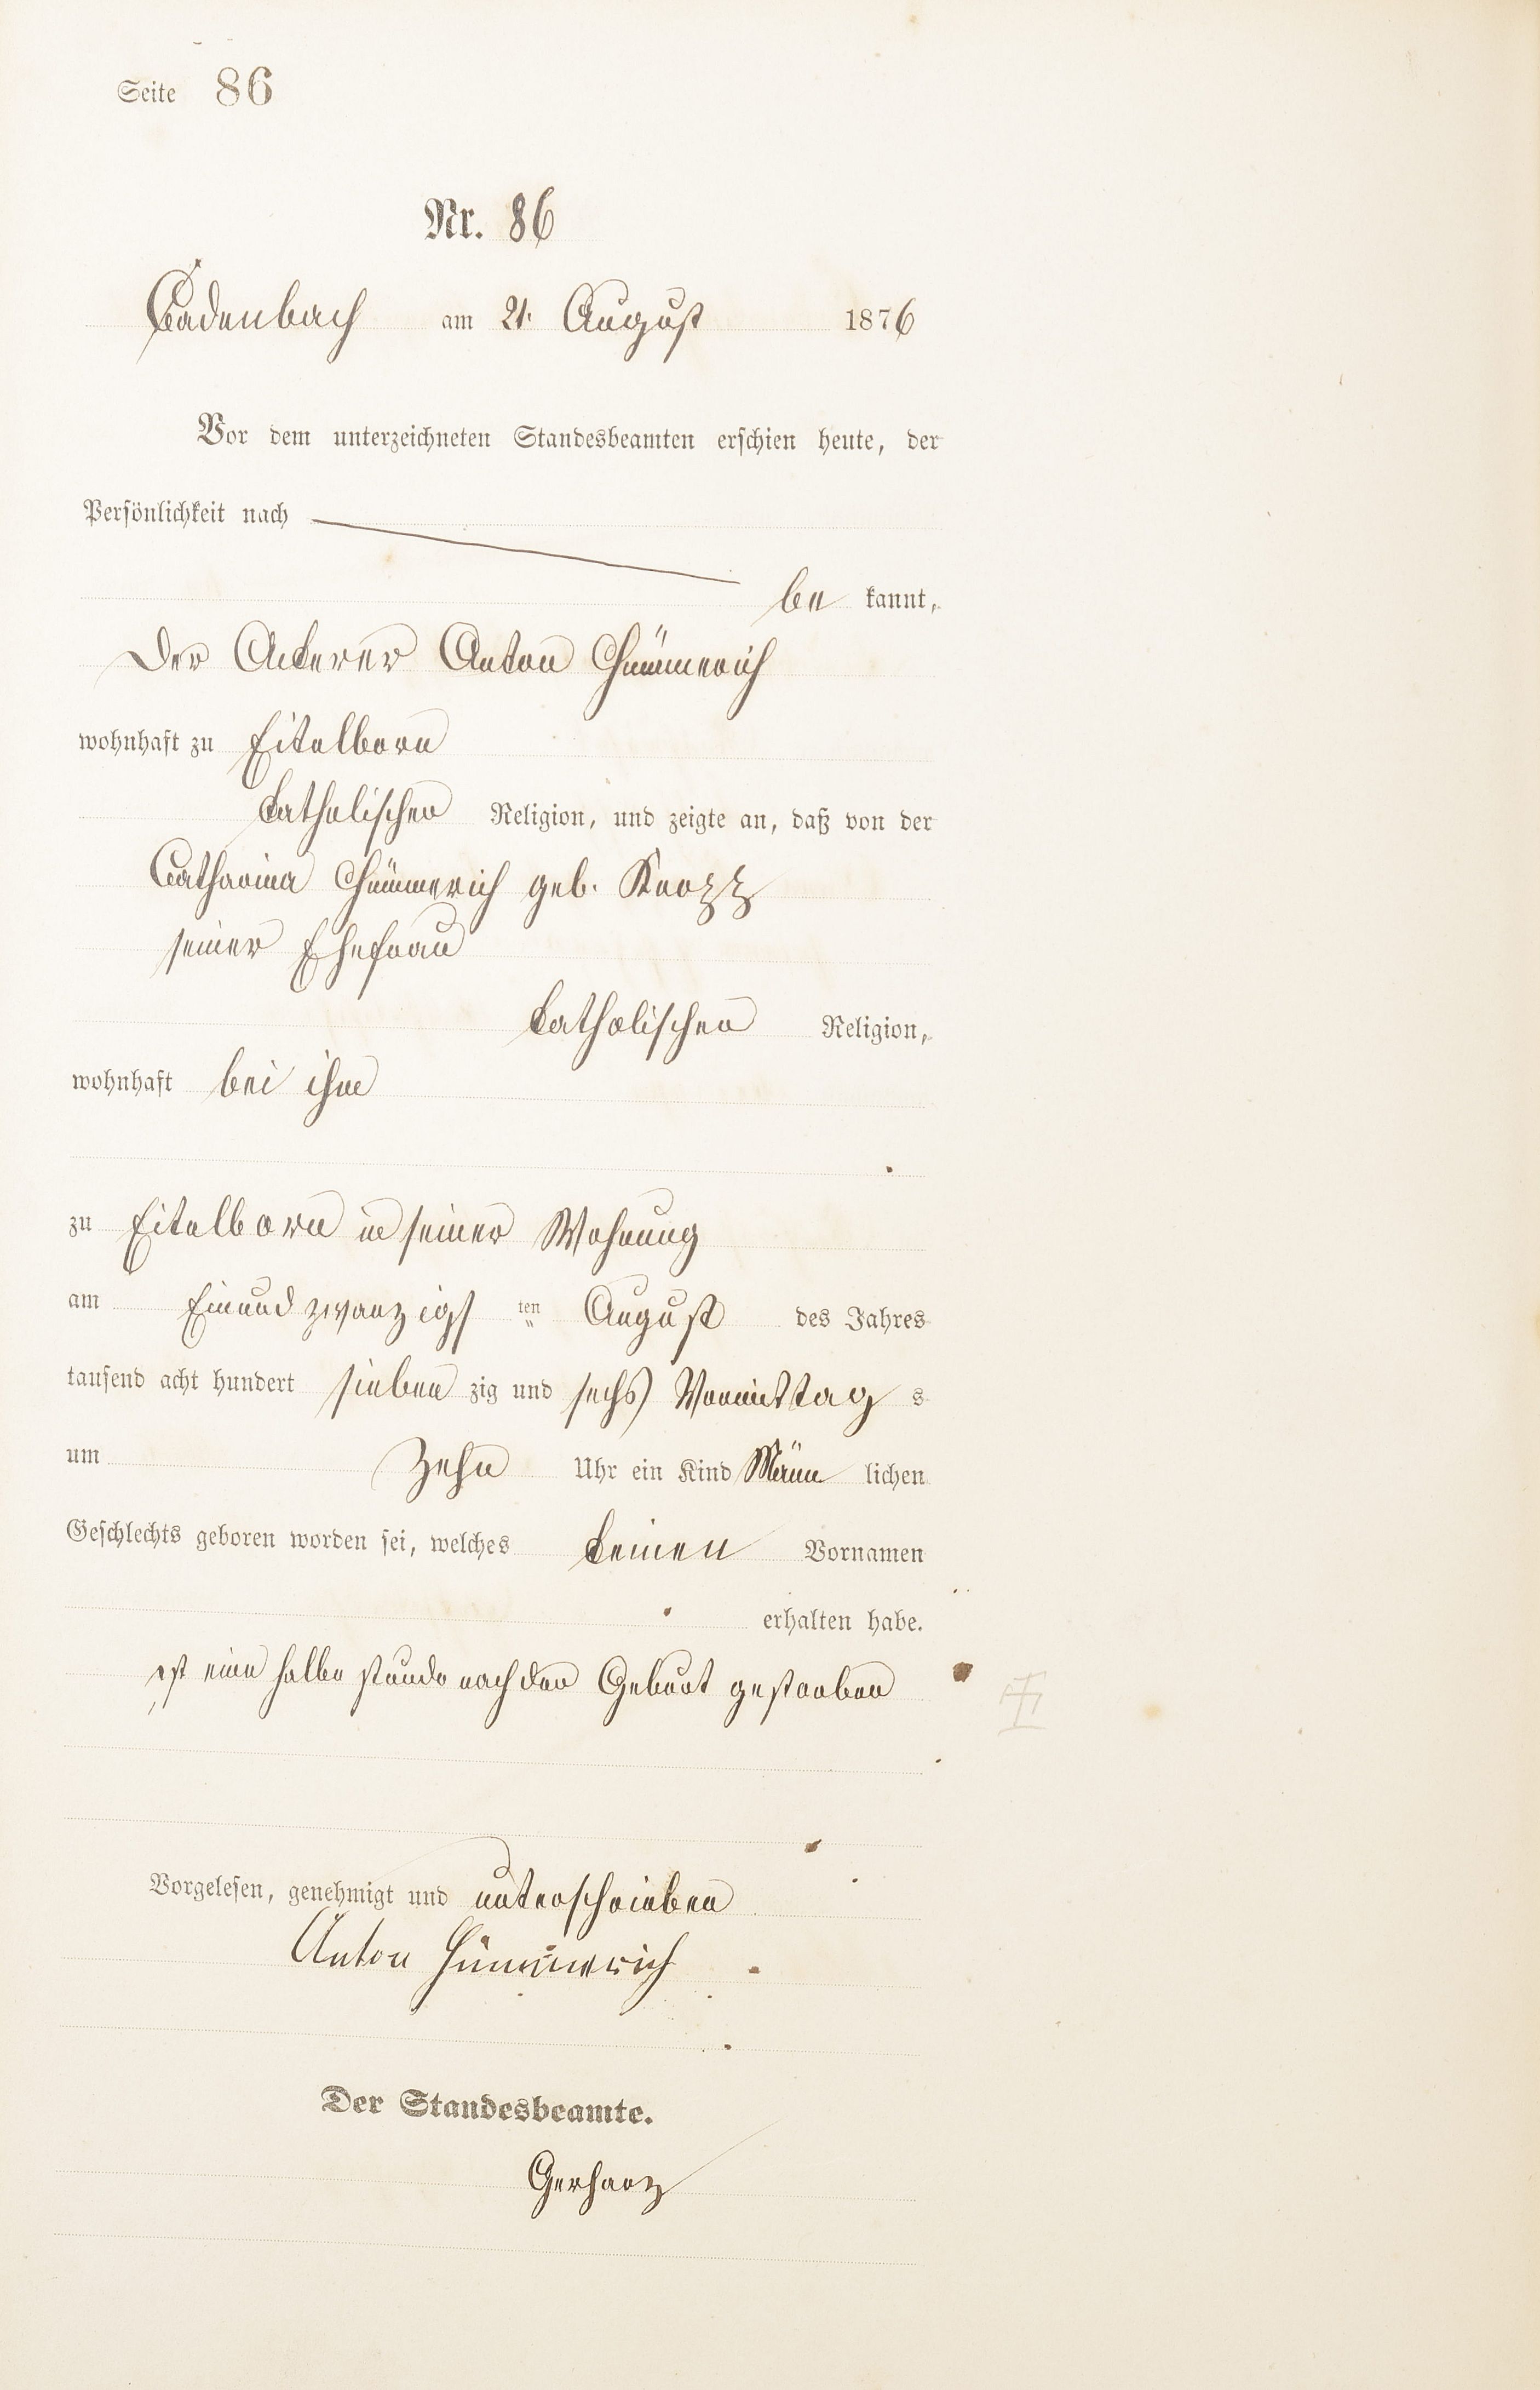 Seite 86
Nr. 86
Cadenbach am 21. August 1876
Vor dem unterzeichneten Standesbeamten erschien heute, der
Persönlichkeit nach
be kannt,
Der Ackerer Anton Hümmerich
wohnhaft zu Eitelborn
katholischer Religion, und zeigte an, daß von der
Catharina Hümmerich geb.
seiner Ehefrau
katholischer Religion,
wohnhaft bei ihm
zu Eitelborn in seiner Wohnung
am Einund zwanzigs ten August des Jahres
tausend acht hundert sieben zig und sechs Vormittag s
um Zehn Uhr ein Kind Männ lichen
Geschlechts geboren worden sei, welches keinen Vornamen
erhalten habe.
ist eine halbe stunde nach der Geburt gestorben
Vorgelesen, genehmigt und unterschrieben
Anton Hümmerich
Der Standesbeamte.
Gerharz